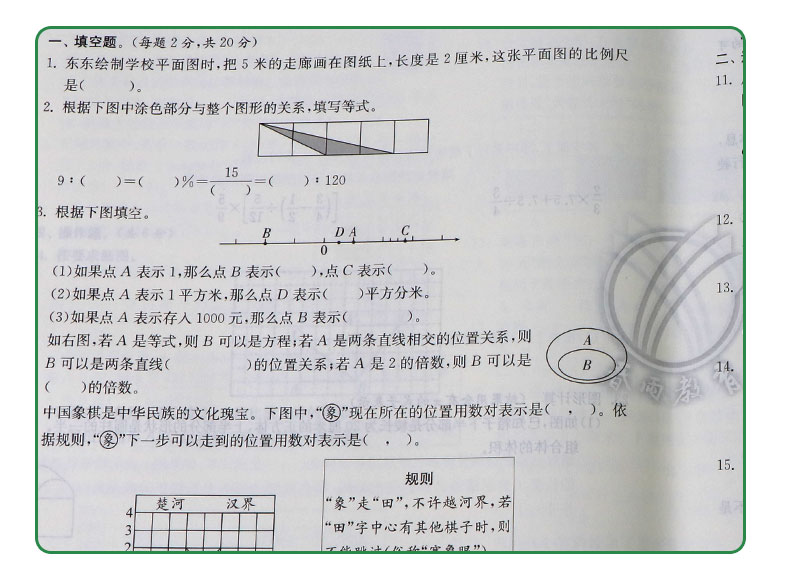 一、填空题。(每题 2 分,共 20 分)
1. 东东绘制学校平面图时,把 5 米的走廊画在图纸上,长度是 2 厘米,这张平面图的比例尺
是(　　)。
2. 根据下图中涂色部分与整个图形的关系,填写等式。
9∶(　　)=(　　)%=15/(　　)=(　　)∶120
3. 根据下图填空。
B　D A　C
0
(1)如果点 A 表示 1,那么点 B 表示(　　),点 C 表示(　　)。
(2)如果点 A 表示 1 平方米,那么点 D 表示(　　)平方分米。
(3)如果点 A 表示存入 1000 元,那么点 B 表示(　　)。
如右图,若 A 是等式,则 B 可以是方程;若 A 是两条直线相交的位置关系,则
B 可以是两条直线(　　)的位置关系;若 A 是 2 的倍数,则 B 可以是
(　　)的倍数。
A
B
中国象棋是中华民族的文化瑰宝。下图中,“象”现在所在的位置用数对表示是(　,　)。依
据规则,“象”下一步可以走到的位置用数对表示是(　,　)。
楚河　汉界
4
3
2
规则
“象”走“田”,不许越河界,若
“田”字中心有其他棋子时,则
二、
11.
12.
13.
14.
15.